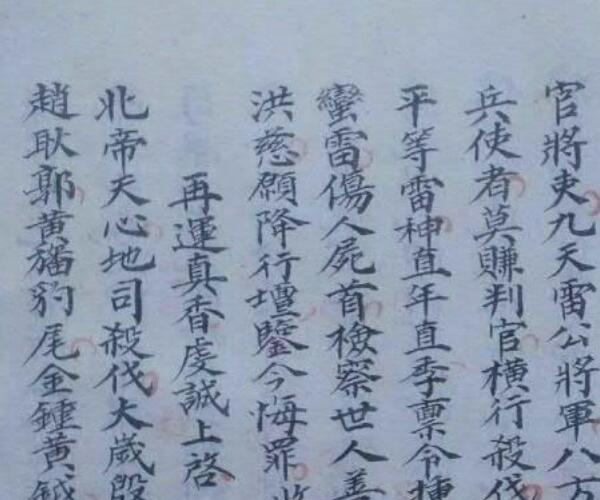 官將吏九天雷公將軍八方
兵使者莫賺判官橫行殺伐
平等雷神直年直季稟令揰
蠻雷傷人屍首檢察世人善
洪慈願降行壇鑒今悔罪
再運真香虔誠上啓
北帝天心地司殺伐大歲殷
趙耿郭黃旛豹尾金鍾黃鉞